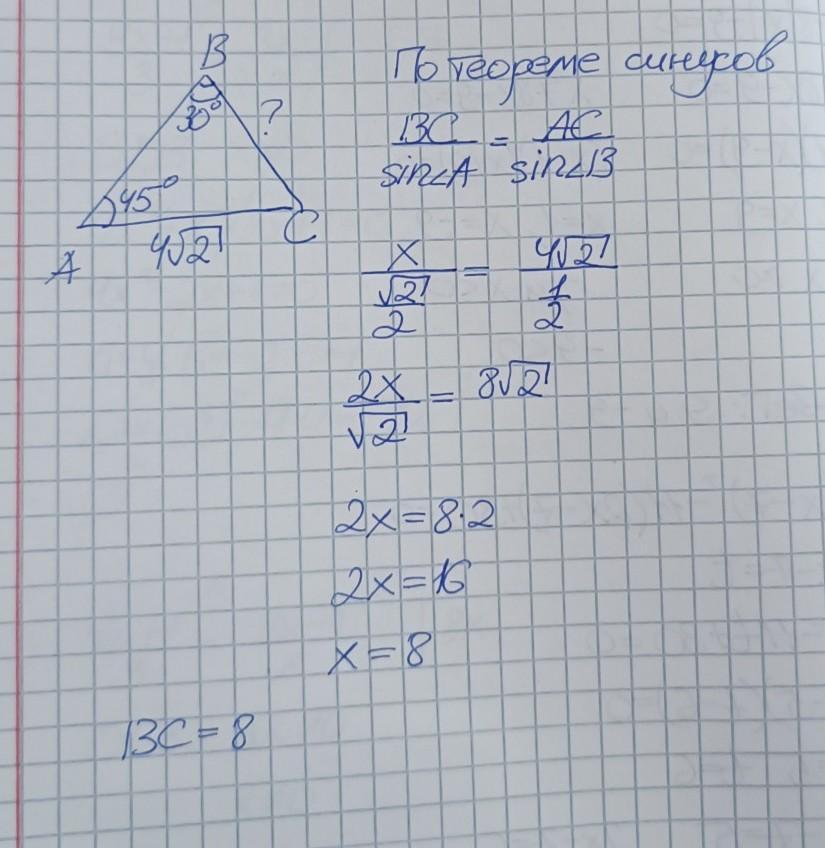 B
30°
?
45°
A
4√2
C
По теореме синусов
BC/sin∠A = AC/sin∠B
x/(√2/2) = 4√2/(1/2)
2x/√2 = 8√2
2x = 8·2
2x = 16
x = 8
BC = 8